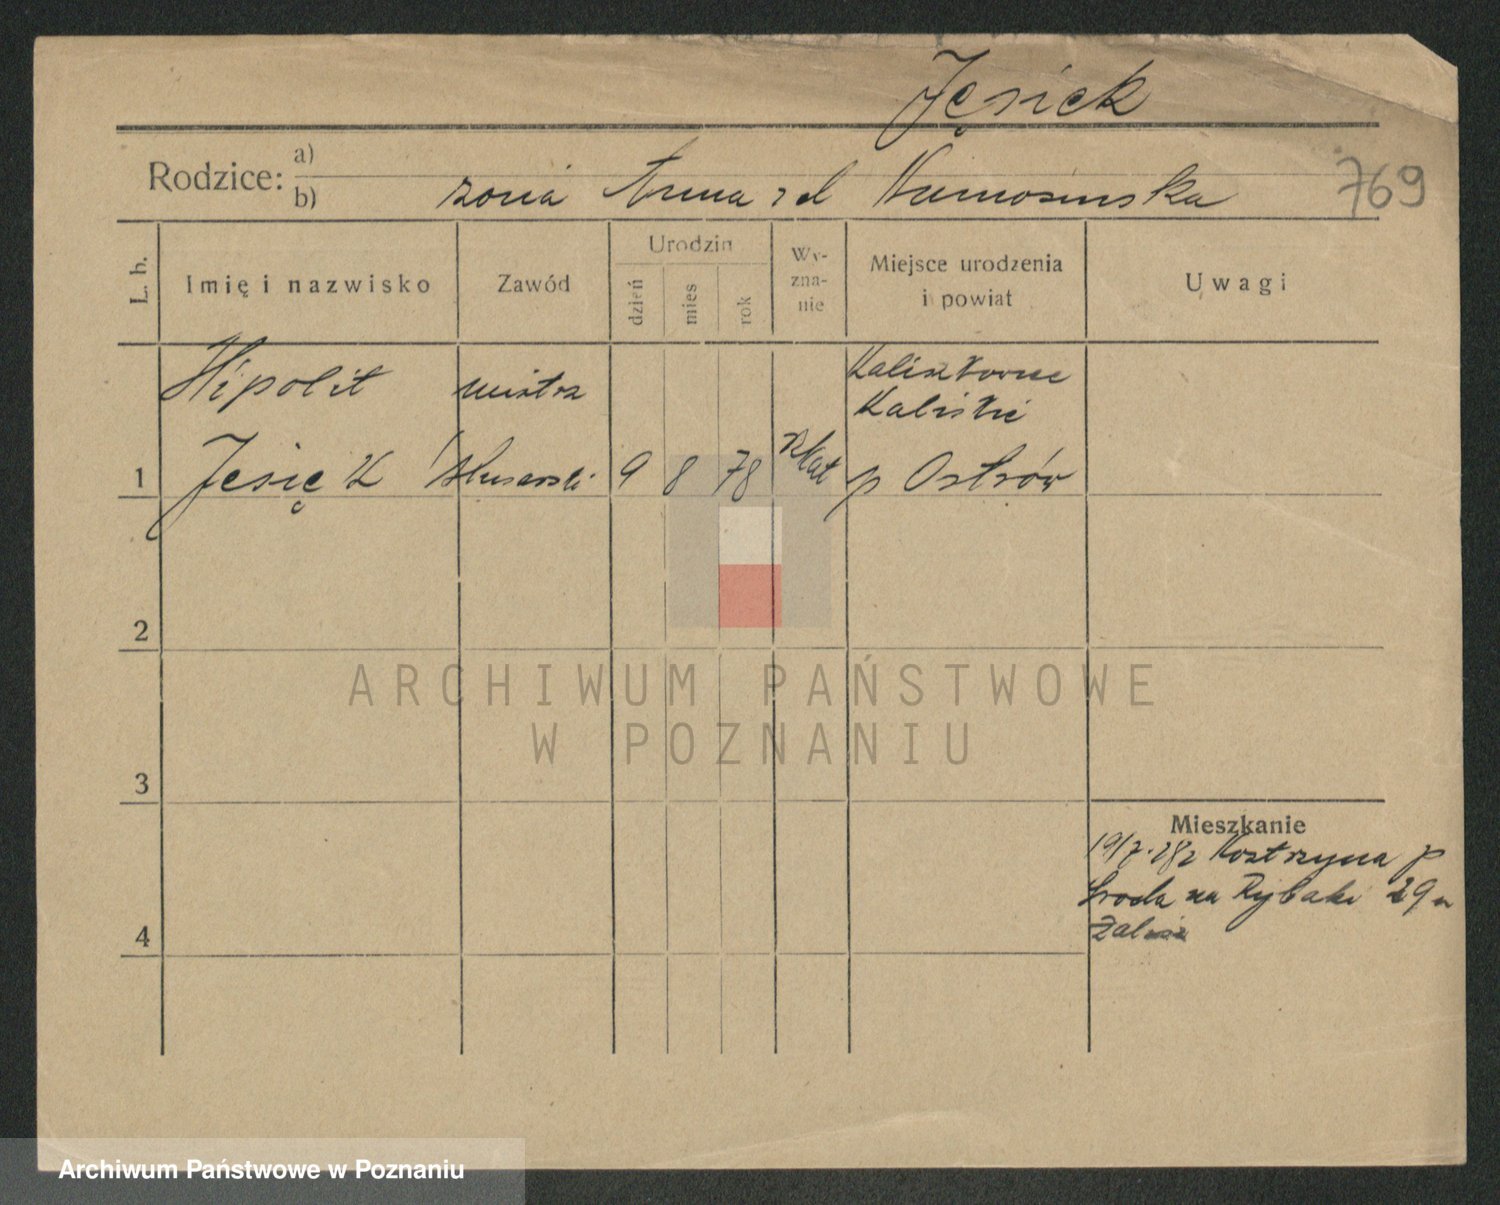 Jęsiek
769
Rodzice: a)
b) zona Anna zd
L. b.
Imię i nazwisko
Zawód
Urodzin
dzień
mies
rok
Wy-
zna-
nie
Miejsce urodzenia
i powiat
Uwagi
Hipolit
mistrz
Kaliszkowice
Kaliskie
1 Jesięk ślusarski 9 8 78 Rkat p Ostrów
2
3
4
Mieszkanie
Kostrzyna p
Środa na Rybaki 29
ARCHIWUM PAŃSTWOWE
W POZNANIU
Archiwum Państwowe w Poznaniu